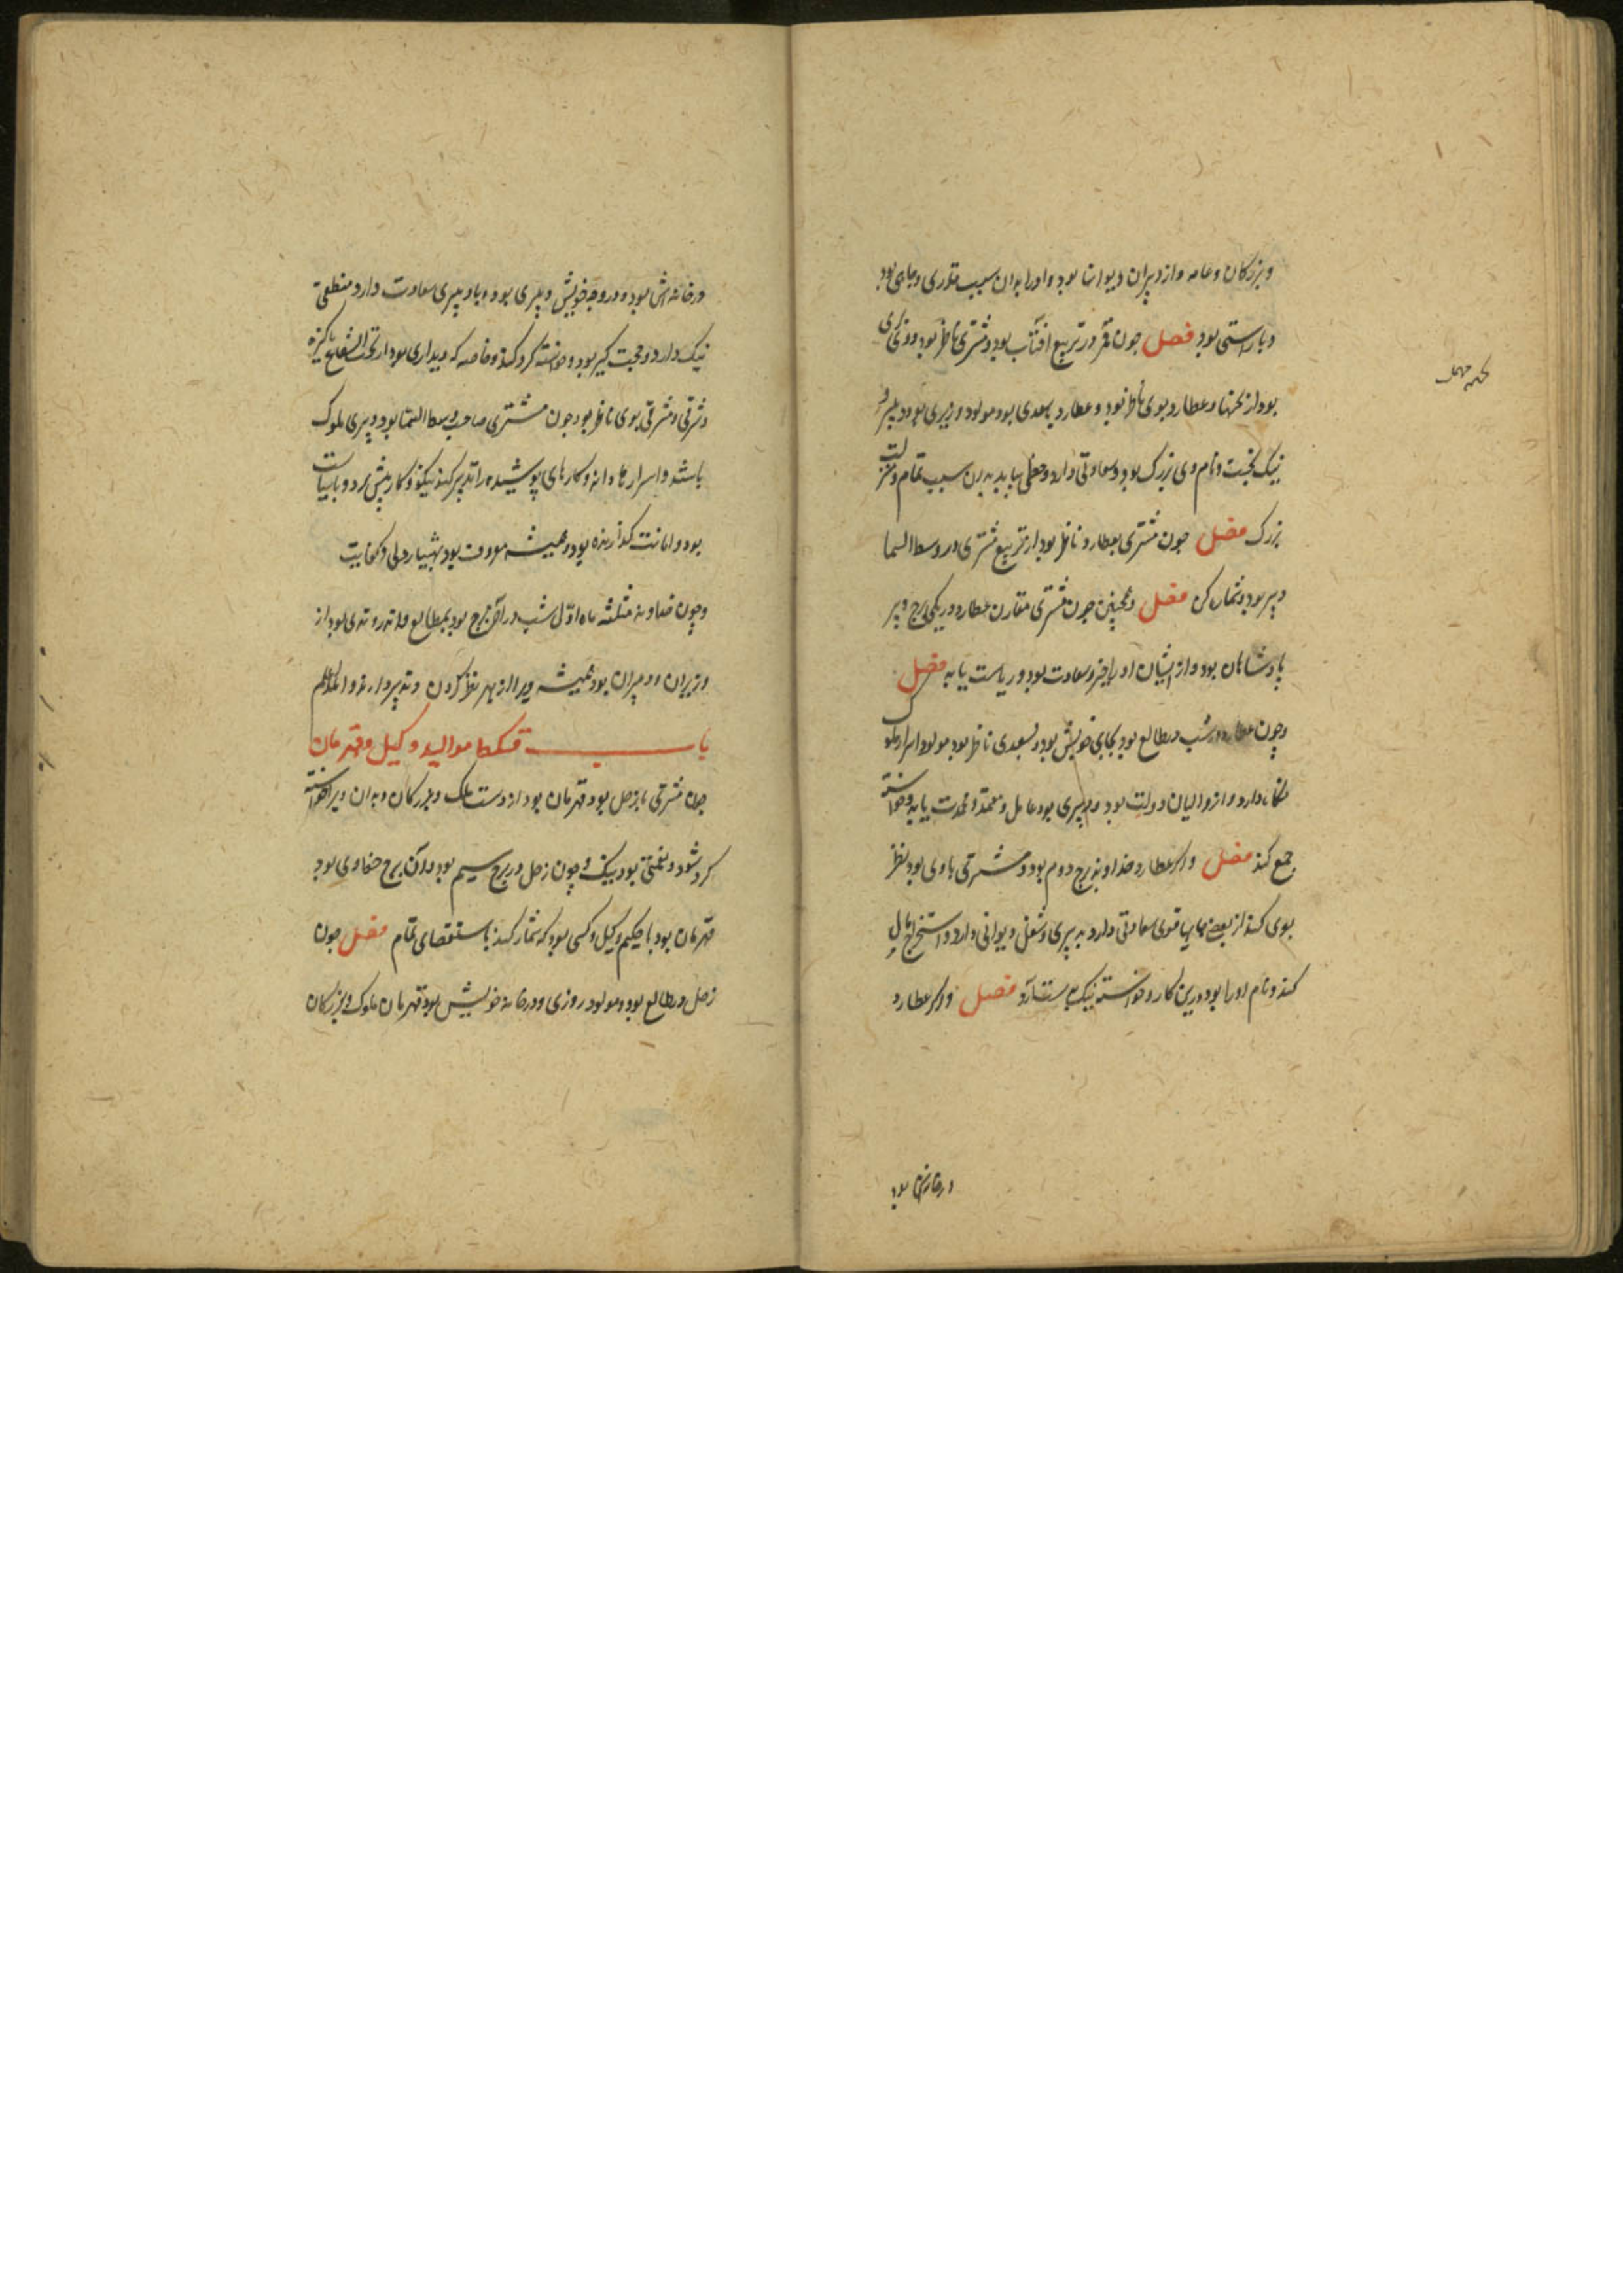 و بزرگان و عامه و از دبیران دیوانها بود و او را بدان سبب قدری و جاهی بود
و باراستی بود فصل چون قمر در تربیع افتاب بود و مشتری ناظر بود و زکی
بود از نحسها و عطارد بوی ناظر بود و عطارد بسعدی بود مولود وزیری بود و دبیر
نیک بخت و نام وی بزرگ بود و سعاوتی دارد و حظی یابد بدین سبب تمام و منزلت
بزرک فصل چون مشتری بعطارد ناظر بود از تربیع مشتری در وسط السما
دبیر بود و شمار کن فصل و همچنین چون مشتری مقارن عطارد در یکی برج دبیر
پادشاهان بود و از ایشان او را خیر و سعادت بود و ریاست یابد فصل
و چون عطارد در شب در طالع بود بجای خویش بود و بسعدی ناظر بود مولود اسرار ملوک
نگاه دارد و از والیان دولت بود و دبیری بود عامل و معتمد و محمدت یابد و خواسته
جمع کند فصل و اکر عطارد خداوند برج دوم بود و مشرقی باوی بود نظر
بوی کند از بعضی جایهاء قوی سعادتی دارد بدبیری و شغل دیوانی دارد و استخراج مال
کند و نام او را بود درین کار و خواسته نیک بدست آرد فصل و اکر عطارد
در خانه‌اش بود
در خانه‌اش بود و در وجه خویش دبیری بود و با دبیری سعادت دارد منطقی
نیک دارد و حجت گیر بود و خواسته گرد کند و خاصه که دیداری بود از تحت الشعاع پاکیزه
و شرقی و مشرقی بوی ناظر بود چون مشتری صاحب وسط السما بود دبیری ملوک
باشد و اسرارها داند و کارهای پوشیده را تدبیر کند نیکو و کار پیش برد و با سیاست
بود و امانت کذارنده بود و همیشه معروف بود بهشیار دلی و کفایت
و چون خداوند مثلثه ماه اول شب در آخر برج بود بمطالع ولادت روندی بود از
وزیران و دبیران بود همیشه ویرا از بهر نظر کردن و تدبیر دارند والله اعلم
باب قسکها موالید وکیل و قهرمان
چون مشرقی با زحل بود قهرمان بود از دست ملک و بزرگان و بدان ویرا خواسته
کرد شود و نعمتی بود نیک و چون زحل در برج سیم بود و آن برج خداوی بود
قهرمان بود با حکیم وکیل و کسی بود که شمار کند باستقصای تمام فصل چون
زحل در طالع بود و مولود روزی و در خانه خویش بود قهرمان ملوک و بزرگان